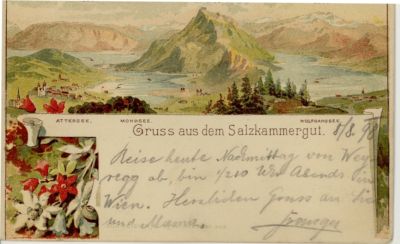 ATTERSEE. MONDSEE. WOLFGANGSEE.
Gruss aus dem Salzkammergut. 8/8. 98
Reise heute Nachmittag von Wey
regg ab, bin 1/210 Uhr Abends in
Wien. Herzlichen Gruss an Sie
und Mama.